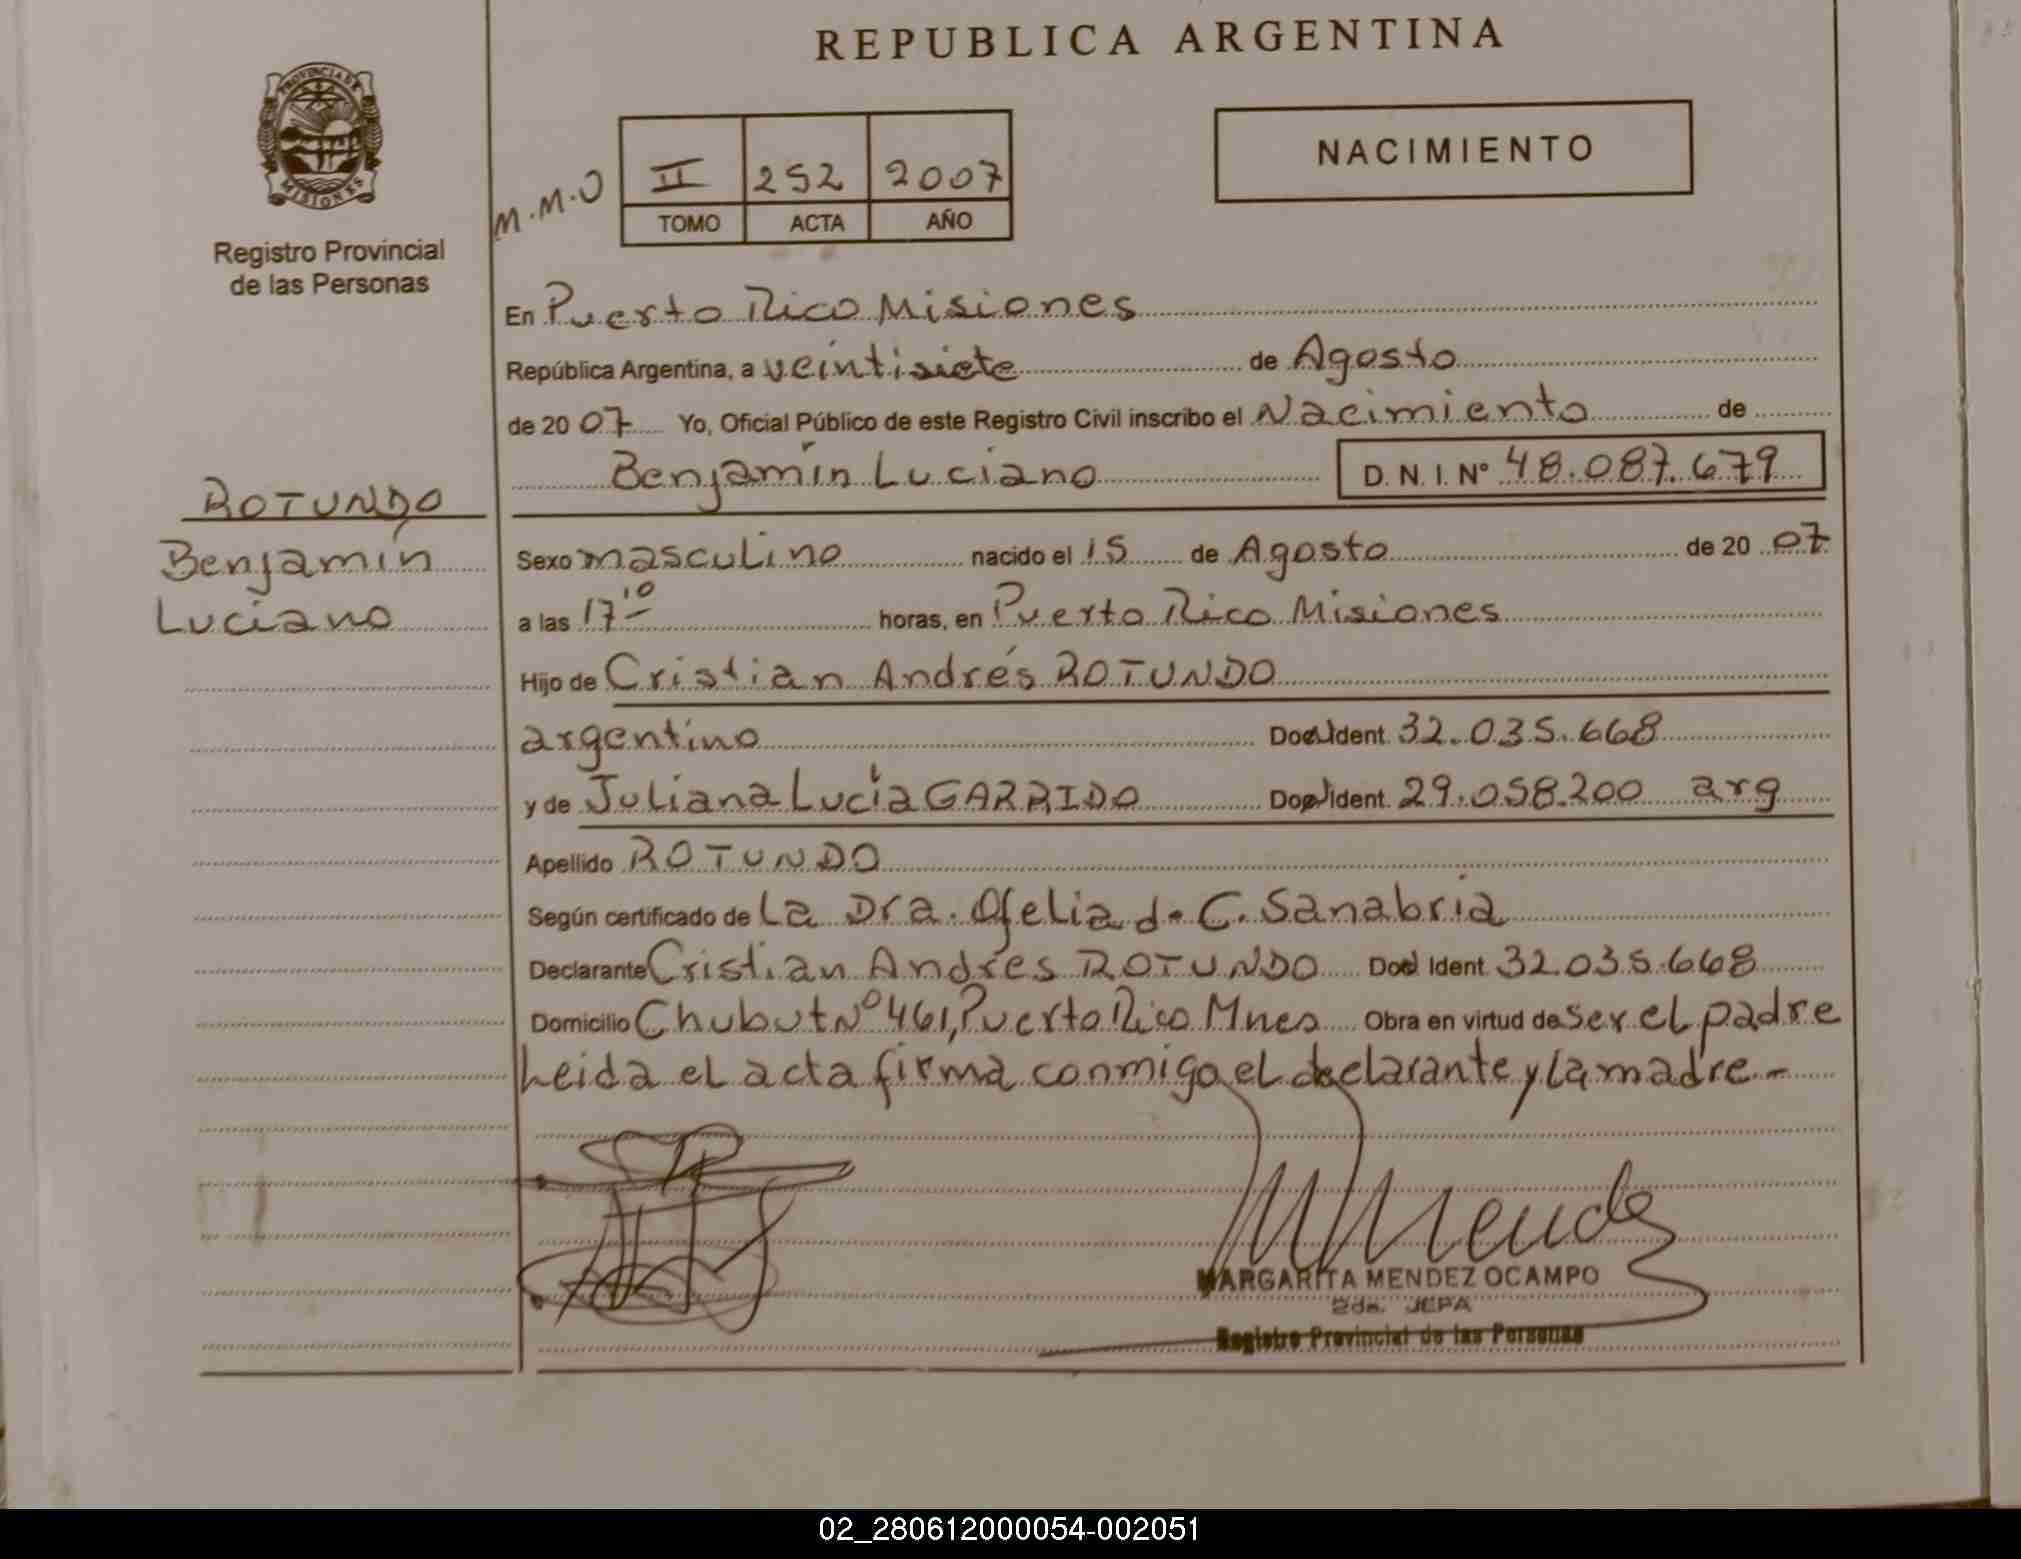 REPUBLICA ARGENTINA
PROVINCIA DE MISIONES
Registro Provincial
de las Personas
M.M.O
II 252 2007
TOMO ACTA AÑO
NACIMIENTO
En Puerto Rico Misiones
República Argentina, a veintisiete de Agosto
de 2007 Yo, Oficial Público de este Registro Civil inscribo el Nacimiento de
Benjamín Luciano D. N. I. Nº 48.087.679
ROTUNDO
Benjamín
Luciano
Sexo masculino nacido el 15 de Agosto de 2007
a las 17¹⁰ horas, en Puerto Rico Misiones
Hijo de Cristian Andrés ROTUNDO
argentino Doc. Ident. 32.035.668
y de Juliana Lucía GARRIDO Doc. Ident. 29.058.200 arg
Apellido ROTUNDO
Según certificado de La Dra. Ofelia d. C. Sanabria
Declarante Cristian Andrés ROTUNDO Doc. Ident 32.035.668
Domicilio Chubut Nº 461, Puerto Rico Mnes Obra en virtud de ser el padre
Leida el acta firma conmigo el declarante y la madre.-
MMendez
MARGARITA MENDEZ OCAMPO
2da. JEFA
Registro Provincial de las Personas
02_280612000054-002051